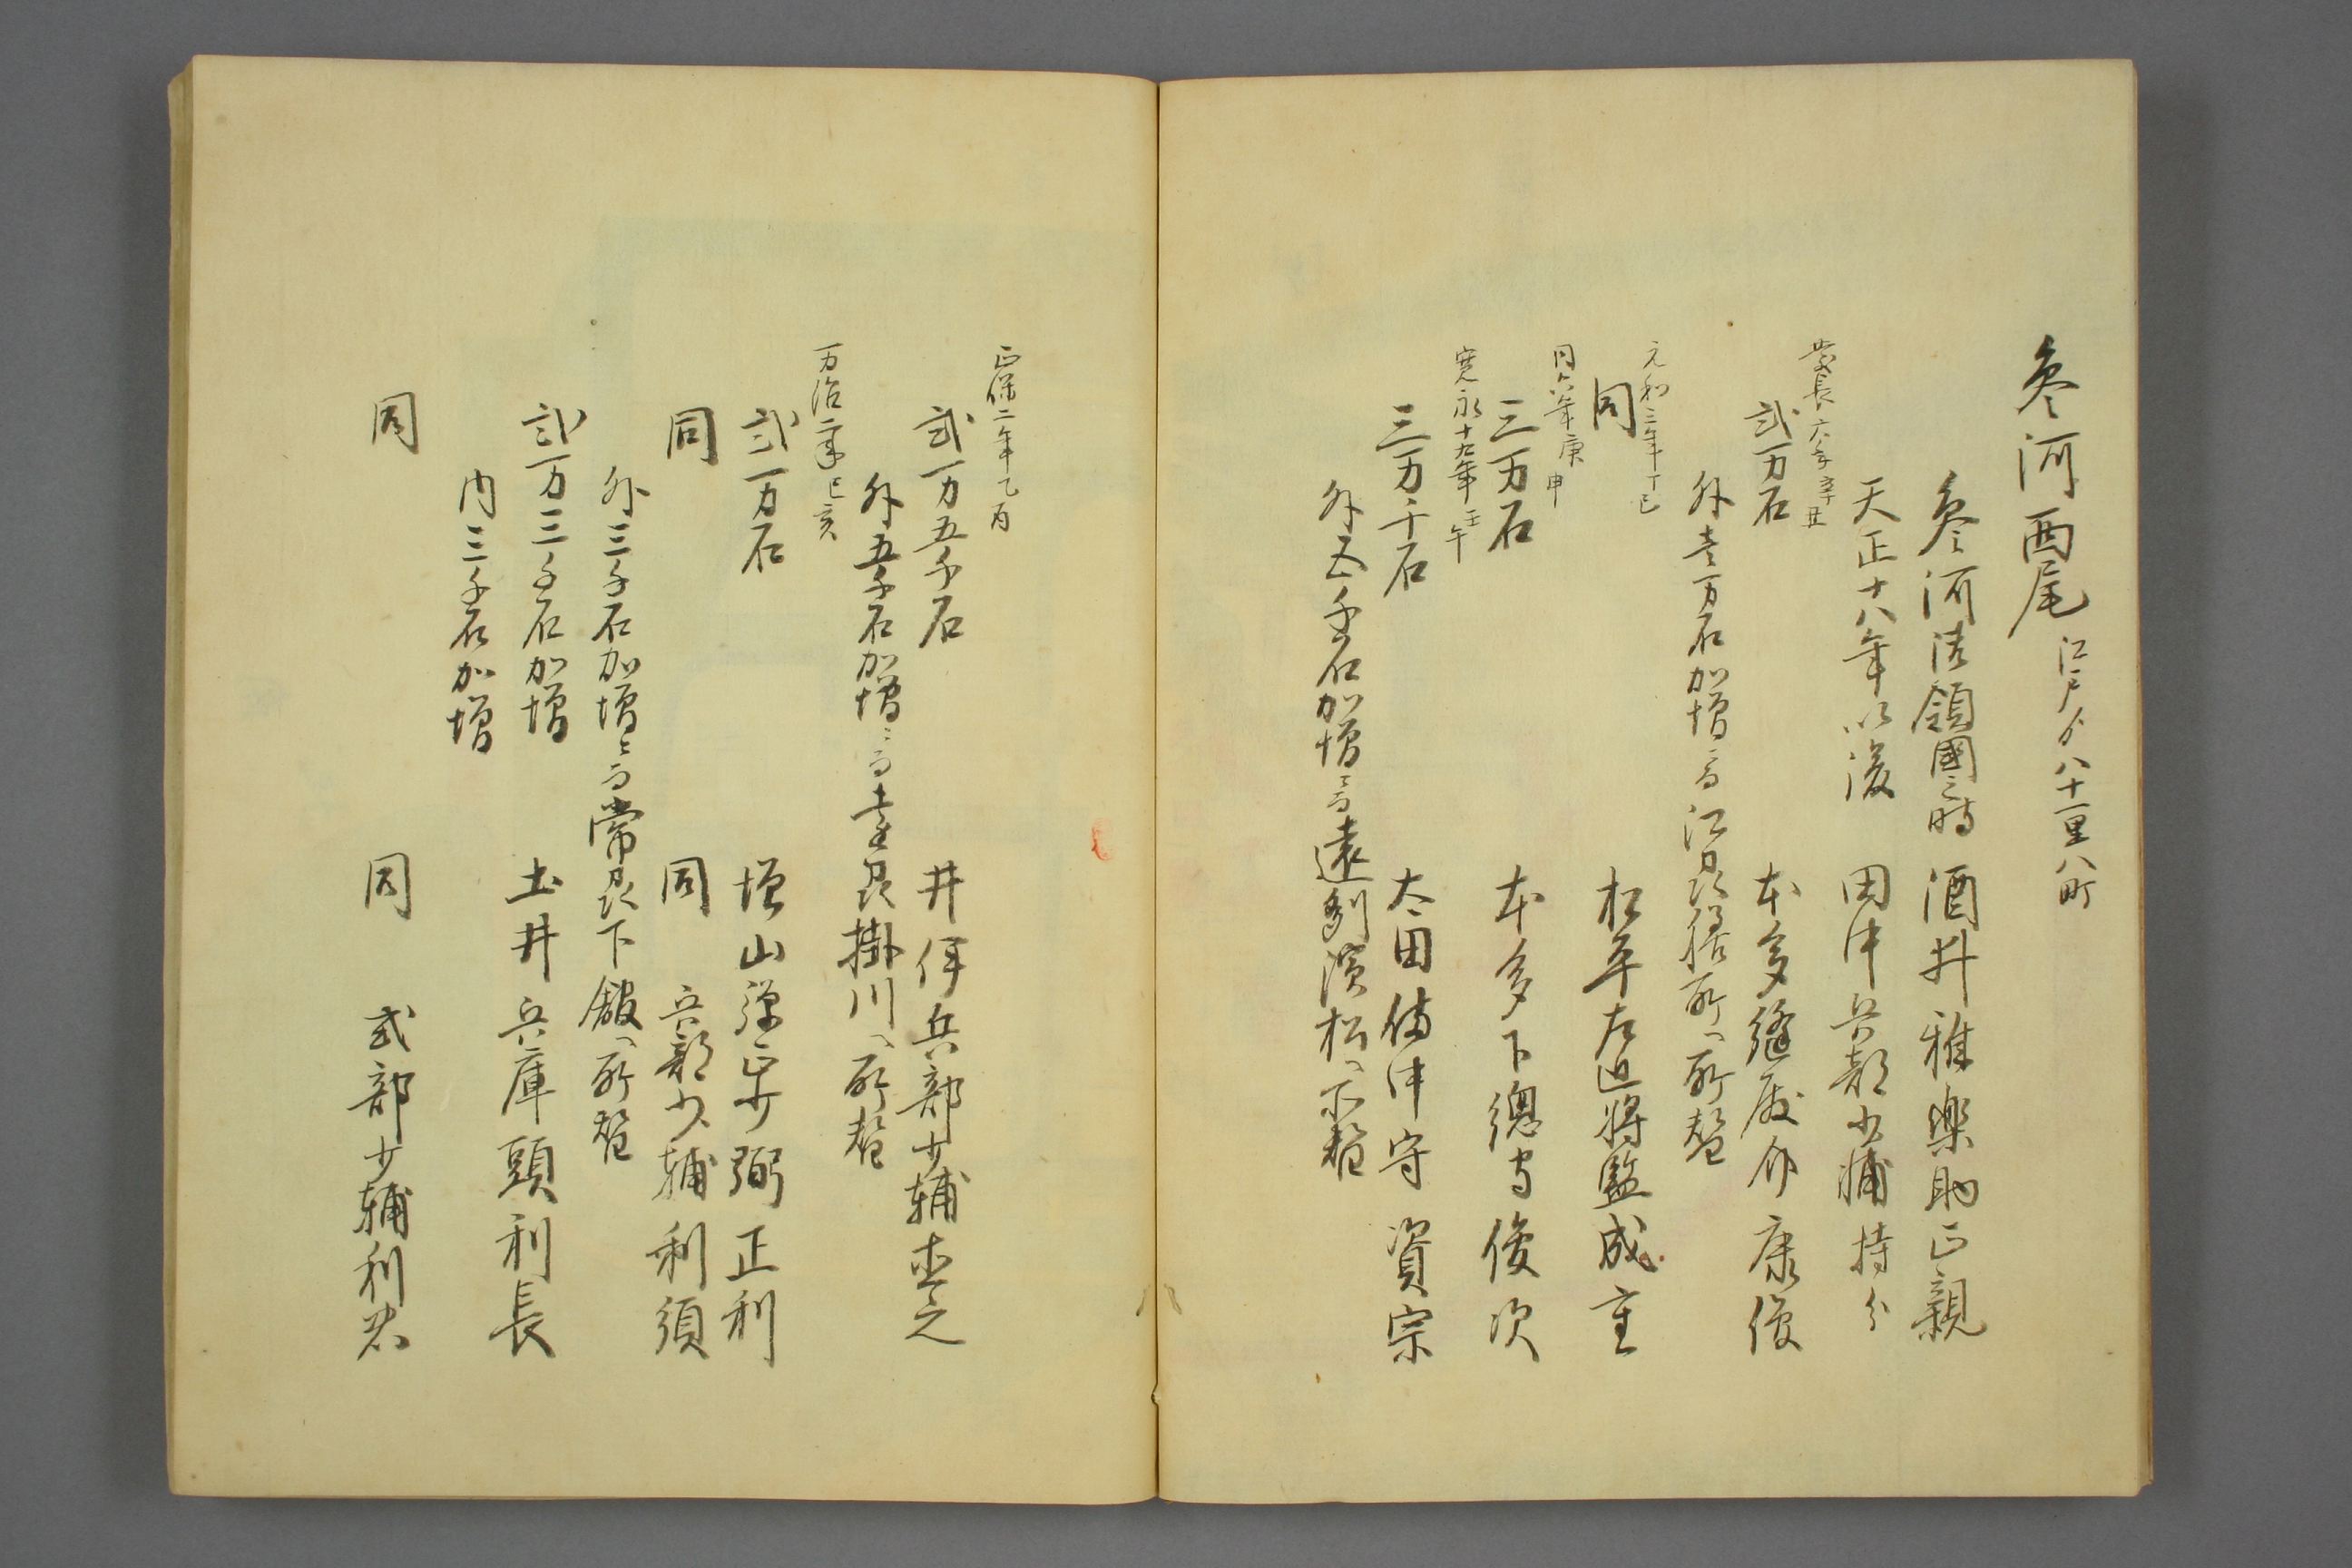 参河西尾 江戸ゟ八十一里八町
参河御領國之時 酒井雅楽助正親
天正十八年以後 田中兵部少輔持分
慶長六年辛丑
弐万石 本多縫殿介康俊
外壱万石加増ニ而江州膳所へ所替
元和三年丁巳
同 松平左近将監成重
同六年庚申
三万石 本多下總守俊次
寛永十九年壬午
三万千石 太田備中守資宗
外五千石加増ニ而遠刕濱松へ所替
正保二年乙酉
弐万五千石 井伊兵部少輔直之
外五千石加増ニ而遠州掛川へ所替
万治二年己亥
弐万石 増山弾正少弼正利
同 同 兵部少輔利須
外三千石加増ニ而常州下館へ所替
弐万三千石加増 土井兵庫頭利長
内三千石加増
同 同 式部少輔利忠